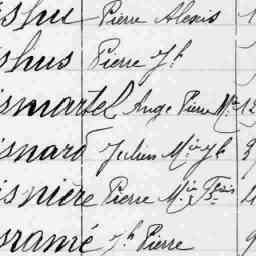 shu Pierre Alexis 1
shus Pierre Jh
smartel Ange Pierre Mie 12
snard Julien Mie Jh 3
snière Pierre Mie Fçois 4
sramé Jh Pierre 9